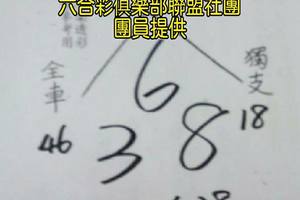 六合彩俱樂部聯盟社團
團員提供
6
全車
獨支
46
3
8
18